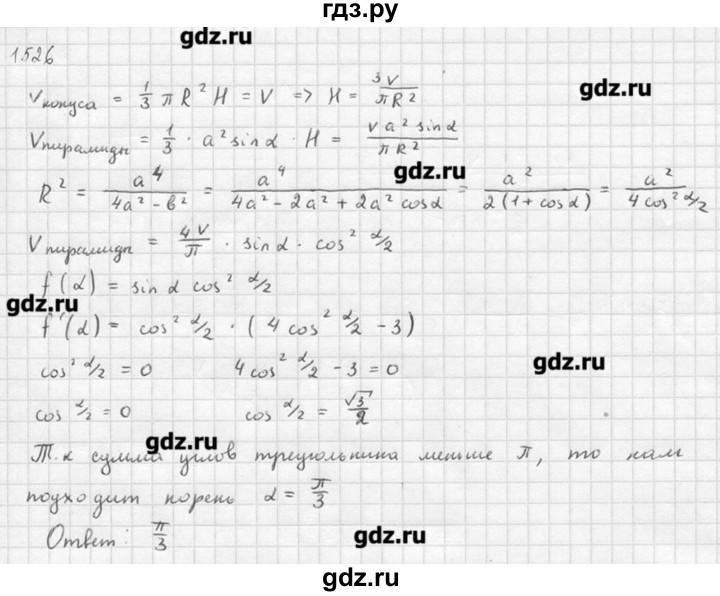 гдз.ру
gdz.ru
1526
gdz.ru
V конуса = 1/3 π R² H = V => H = 3V / πR²
V пирамиды = 1/3 · a² sin α · H = V a² sin α / π R²
gdz.ru
R² = a⁴ / 4a² - b² = a⁴ / 4a² - 2a² + 2a² cos α = a² / 2(1 + cos α) = a² / 4 cos² α/2
V пирамиды = 4V / π · sin α · cos² α/2
f(α) = sin α cos² α/2
gdz.ru
f'(α) = cos² α/2 · (4 cos² α/2 - 3)
gdz.ru
cos² α/2 = 0 4 cos² α/2 - 3 = 0
cos α/2 = 0 cos α/2 = √3 / 2
gdz.ru
Т.к сумма углов треугольника меньше π, то нам
подходит корень α = π/3
Ответ: π/3
gdz.ru
gdz.ru